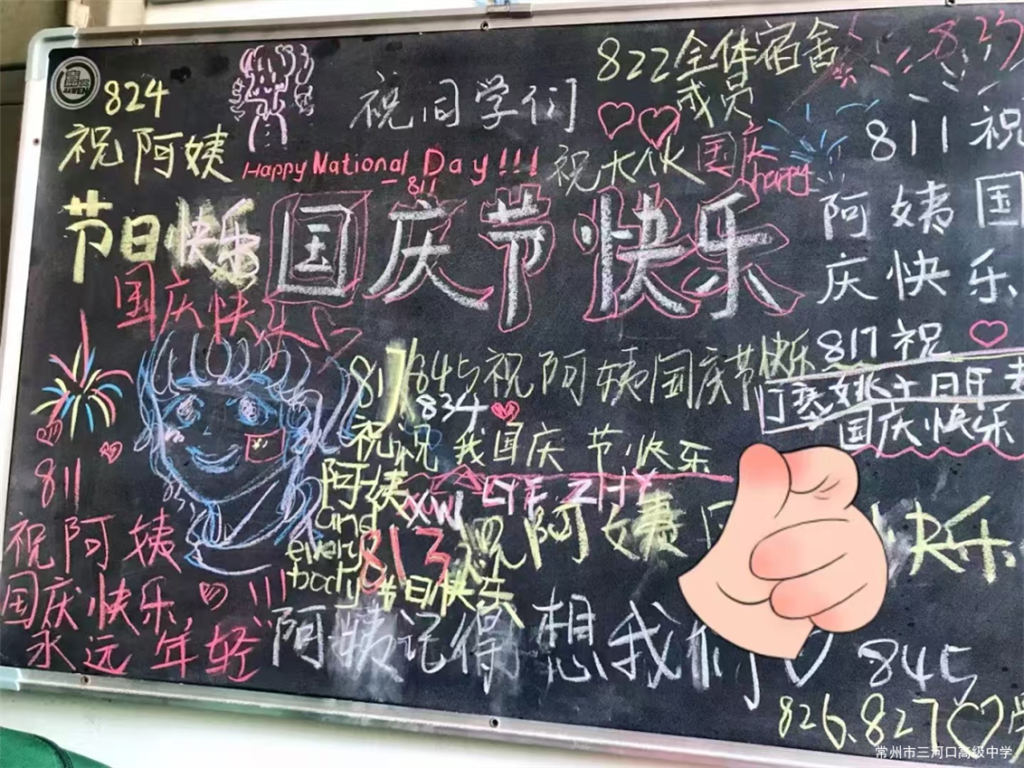 824
祝阿姨
节日快乐
祝同学们
Happy National Day!!!
811
822全体宿舍
成员
祝大伙国庆
happy
823
811祝
阿姨国
庆快乐
国庆节快乐
国庆快乐
845祝阿姨国庆节快乐
817祝
国庆快乐
834
祝我国庆节快乐
817
祝
阿姨
and
every
body
节日快乐
XW LYF ZHY
813祝阿姨
快乐
811
祝阿姨
国庆快乐,
永远年轻
!!!
阿姨记得想我们
845
826.827
常州市三河口高级中学